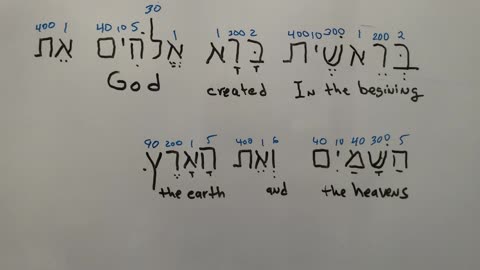 30
400 1 40 10 5 1 1 200 2 400 10 300 1 200 2
בְּרֵאשִׁית בָּרָא אֱלֹהִים אֵת
God created In the begining
90 200 1 5 400 1 6 40 10 40 300 5
הַשָּׁמַיִם וְאֵת הָאָרֶץ.
the earth and the heavens